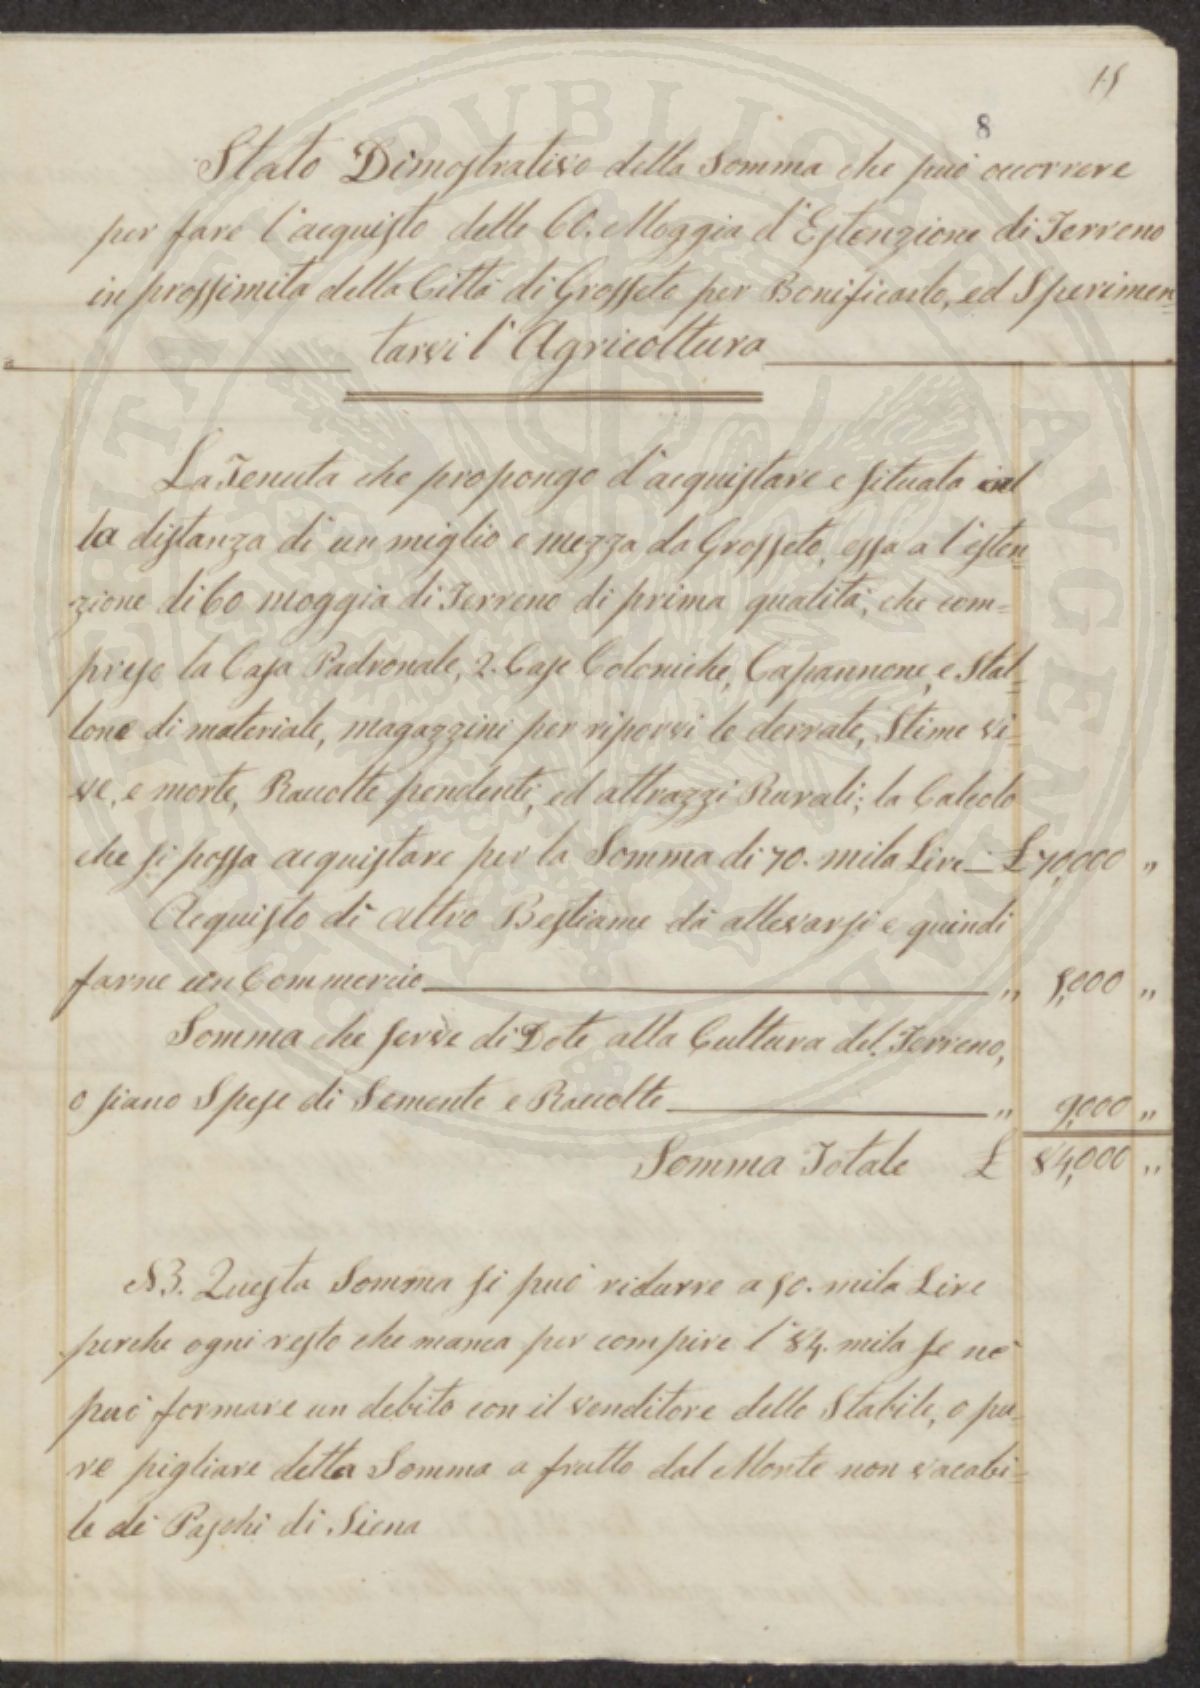 15
8
Stato Dimostrativo della Somma che può occorrere
per fare l'acquisto delle 60. Moggia d'Estenzione di Terreno
in prossimita della Città di Grosseto per Bonificarlo, ed Sperimen=
tarvi l'Agricoltura
La Tenuta che propongo d'acquistare e situata al
la distanza di un miglio e mezza da Grosseto, essa a l'esten=
zione di 60 moggia di Terreno di prima qualità, che com=
prese la Casa Padronale, 2. Case Coloniche, Capannone, e Stal=
lone di materiale, magazzini per riporvi le derrate, Stime vi=
ve, e morte, Raccolte pendenti, ed attrazzi Rurali; la Calcolo
che si possa acquistare per la Somma di 70. mila Lire = £ 70,000 „
Acquisto di altro Bestiame da allevarsi e quindi
farne un Commercio „ 5,000 „
Somma che serve di Dote alla Cultura del Terreno,
o siano Spese di Semente e Raccolte „ 9,000 „
Somma Totale £ 84,000 „
NB. Questa Somma si può ridurre a 50. mila Lire
perche ogni resto che manca per compire l'84. mila se ne
può formare un debito con il venditore dello Stabile, o pu=
re pigliare detta Somma a frutto dal Monte non vacabi=
le dei Paschi di Siena